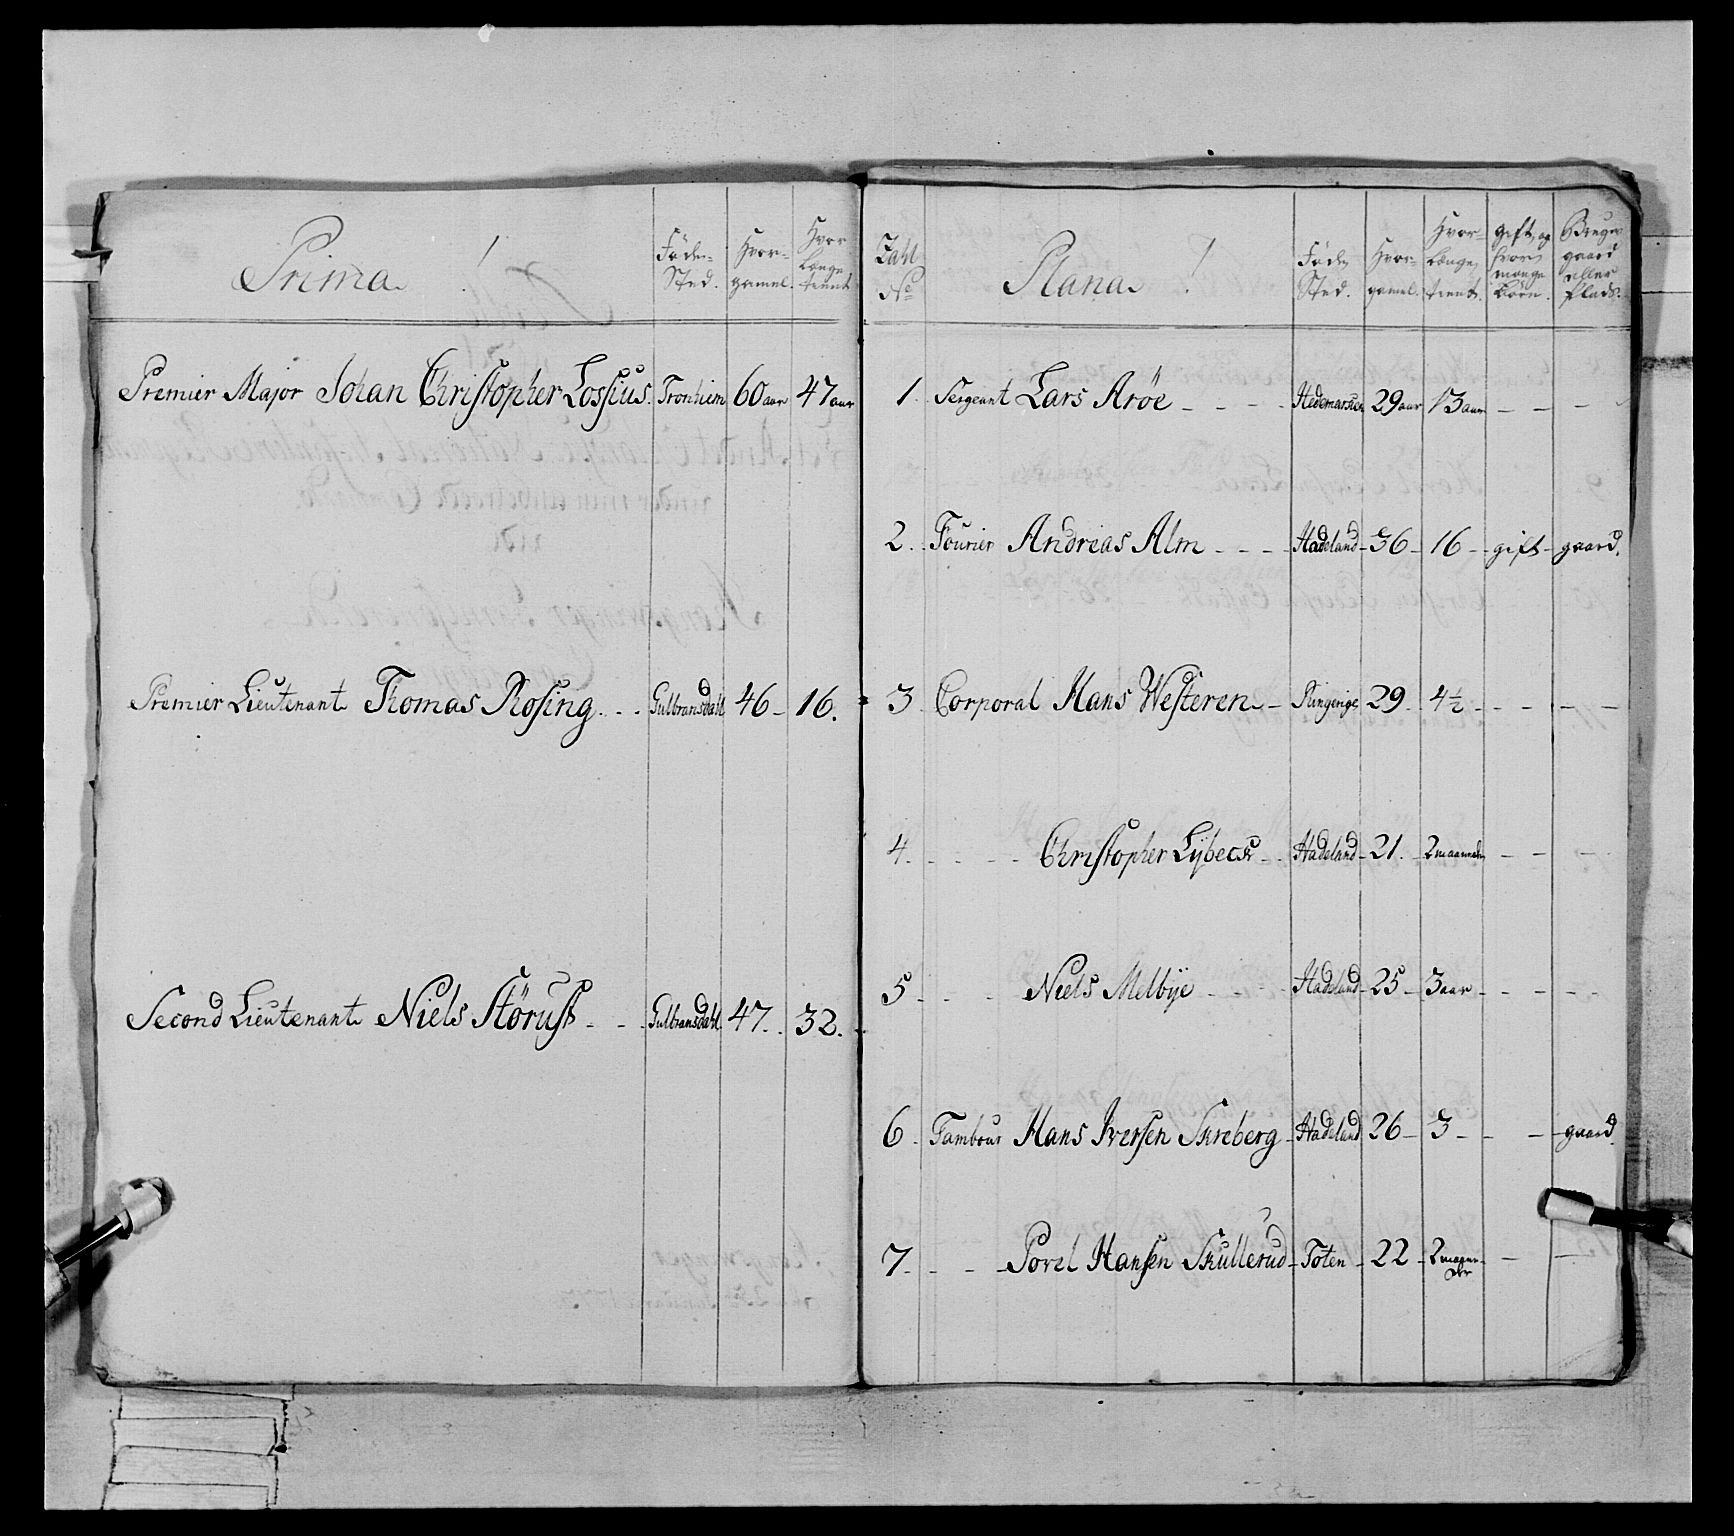 Prima. !
Føde-
Sted.
Hvor-
gamel.
Hvor
længe
tient
Premier Major Johan Christopher Lossius. Tronhiem 60 aar 47 aar
Premier Lieutenant Thomas Rosing. - - Gulbransdahl 46 - 16.
Second Lieutenant Niels Störust - - - Gulbransdahl 47. . 32.
Zahl
No
Plana. !
Føde
Sted.
Hvor-
gamel.
Hvor-
længe
tient.
gift, og
hvor
mange
Börn.
Bruger
gaard
eller
Plads.
1. Sergeant Lars Aröe - - - - Hedemarken 29 aar 13 aar - - -
2. Fourier Andreas Alm - - - - Hadeland - 36 - 16 - gift - gaard.
3. Corporal Hans Westeren - - Ringerige 29. 4½ - - - - -
4. - - - - Christopher Lybeck - - Hadeland - 21. - 2 maaneder - - -
5 - - - - Niels Melbÿe - - - Hadeland - 25 - 3 aar - - - - -
6. Tambour Hans Iversen Skreberg - Hadeland 26 - 3 - - - gaard.
7. - - - Povel Hansen Skullerud - Toten - 22 - 2 maaneder - -